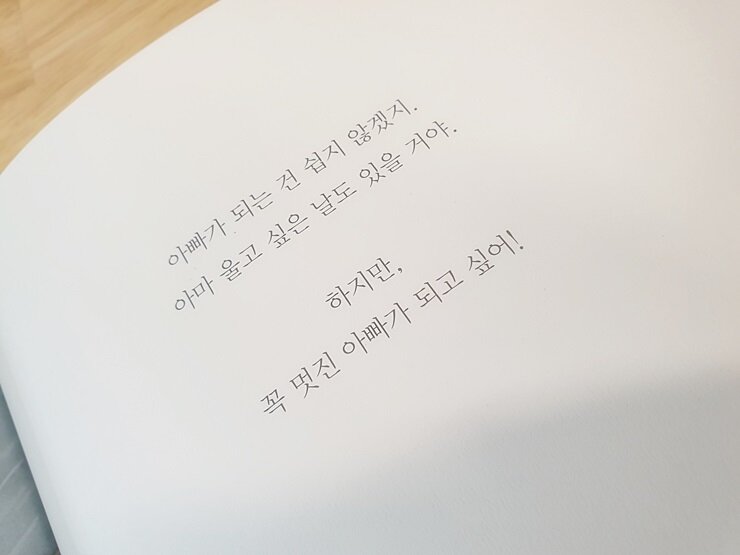 아빠가 되는 건 쉽지 않겠지.
아마 울고 싶은 날도 있을 거야.
하지만,
꼭 멋진 아빠가 되고 싶어!